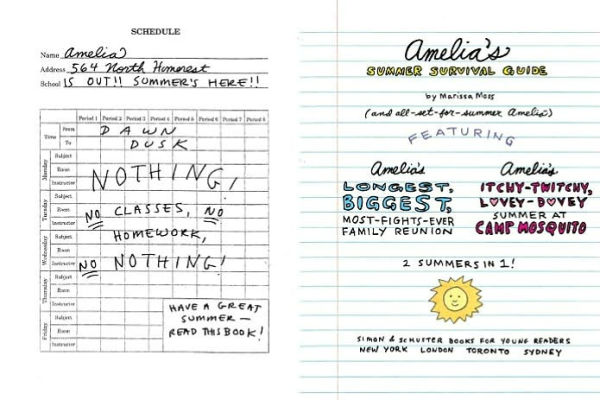 SCHEDULE
Name Amelia
Address 564 North Homerest
School IS OUT!! SUMMER'S HERE!!
Period 1 Period 2 Period 3 Period 4 Period 5 Period 6 Period 7 Period 8
Time From DAWN
To DUSK
Monday Subject
Room NOTHING!
Instructor
Tuesday Subject
Room NO CLASSES, NO
Instructor
Wednesday Subject HOMEWORK,
Room NO NOTHING!
Instructor
Thursday Subject
Room
Instructor HAVE A GREAT
Friday Subject SUMMER —
Room READ THIS BOOK!
Instructor
Amelia's
SUMMER SURVIVAL GUIDE
by Marissa Moss
(and all-set-for-summer Amelia)
FEATURING
Amelia's
LONGEST,
BIGGEST,
MOST-FIGHTS-EVER
FAMILY REUNION
Amelia's
ITCHY-TWITCHY,
LOVEY-DOVEY
SUMMER AT
CAMP MOSQUITO
2 SUMMERS IN 1!
SIMON & SCHUSTER BOOKS FOR YOUNG READERS
NEW YORK LONDON TORONTO SYDNEY